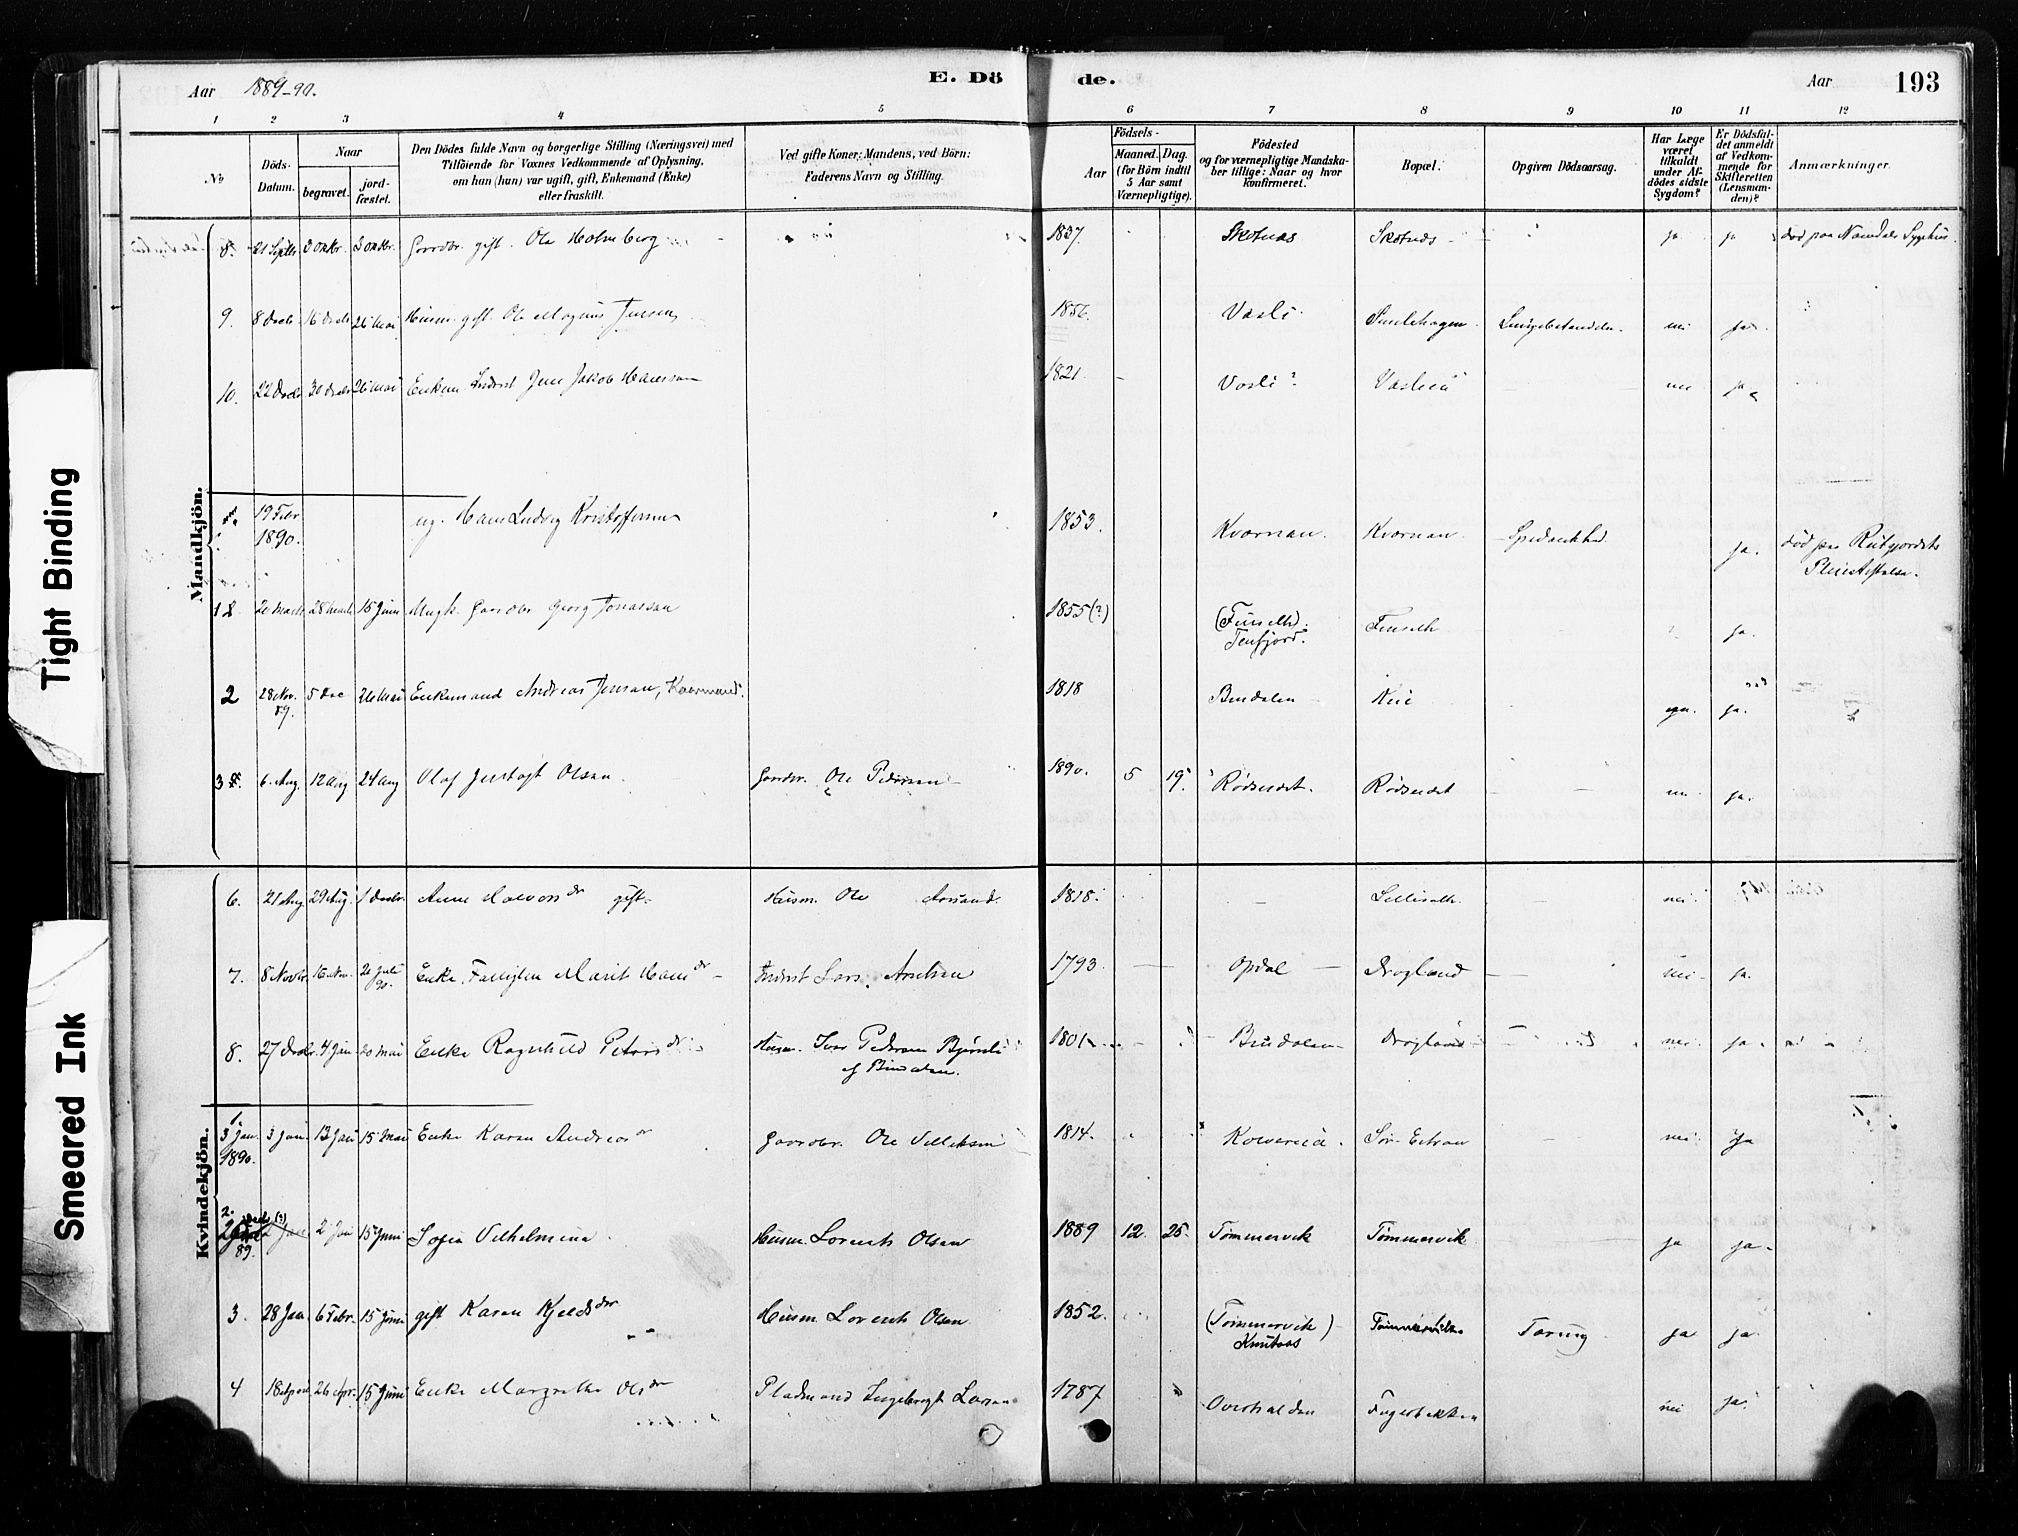 Aar 1889-90.
E. Dö de.
Aar 193
1 2 3 4 5 6 7 8 9 10 11 12
No
Döds-Datum.
Naar
begravet.
jord-fæstet.
Den Dödes fulde Navn og borgerlige Stilling (Næringsvei) med
Tilföiende for Voxnes Vedkommende af Oplysning,
om han (hun) var ugift, gift, Enkemand (Enke)
eller fraskilt.
Ved gifte Koner: Mandens, ved Börn:
Faderens Navn og Stilling.
Födsels-
Aar
Maaned. Dag.
(for Börn indtil
5 Aar samt
Værnepligtige).
Födested
og for værnepligtige Mandska-
ber tillige: Naar og hvor
konfirmeret.
Bopæl.
Opgiven Dödsaarsag.
Har Læge
været
tilkaldt
under Af-
dödes sidste
Sygdom?
Er Dödsfal-
det anmeldt
af Vedkom-
mende for
Skifteretten
(Lensman-
den)?
Anmærkninger.
Mandkjön.
8. 21 Septbr 3 Oktbr. 3 Oktbr. Gaardbr. gift. Ole Holmberg 1837. Skotnes Skotnes ja ja død paa Namdals Sygehus.
9. 8 Decbr 16 Decbr 26 Mai Husm. gift. Ole Magnus Jensen 1856. Vasli Lungebetændelse. nei ja.
10. 22 Decbr 30 Decbr 26 Mai Enkem. Inderst Jens Jakob Hanssen 1821 Vasli? Vaslia nei ja
19 Febr 1890. ug. Hans Ludvig Kristoffersen 1853. Kvernan. Kvernan. Spedalskhed. ja. død paa Reitgjerdets
Pleiestiftelse.
1 20 Marts 28 Marts 15 Juni Ungk. Gaardbr Georg Jonassen 1855(?) (Finseth).
Tenfjord. Finseth ja.
2 28 Nov. 89. 5 Dec 26 Mai Enkemand Andreas Jensen, Kaarmand. 1818 Bindalen ja.
3 6. Aug. 12 Aug 24 Aug Olaf Justoft Olsen. Gaardbr. Ole Pedersen 1890. 5 19. Rødseidet. Rødseidet nei ja.
Kvindekjön.
6. 21 Aug 29 Aug. 1 Decbr. Anne Halvorsdr gift. Husm. Ole 1818. Selliseth. nei
7. 8 Novbr. 16 Nov. 90. Enke, Fattiglem Marit Hansdr Inderst Lars Arntsen 1793 Opdal Drogland nei ja.
8. 27 Decbr. 4 Jan 20 Mai Enke Ragnhild Petersdr Husm. Ivar Pedersen Bjørnli
af Bindalen. 1801 Bindalen Drogland nei ja
1. 3 Jan. 1890. 3 Jan 13 Jan 15 Mai Enke Karen Andreasdr Gaardbr. Ole Villiksen 1814. Kolvereid. nei ja
2. 89. 2 Jan 15 Juni Sofia Vilhelmina Husm. Lorents Olsen 1889 12. 25. Tømmervik Tømmervik ja ja
3. 28 Jan 6 Febr. 15 Juni gift Karen Kjeldsdr Husm. Lorents Olsen 1852. (Tømmervik)
Knutaas Tømmervik Tæring ja ja
4 18 April 26 Apr. 15 Juni Enke Margrethe Olsdr Pladsmand Ingebrigt Larsen 1787 Overhalden Fugelbækken nei ja.
Tight Binding
Smeared Ink